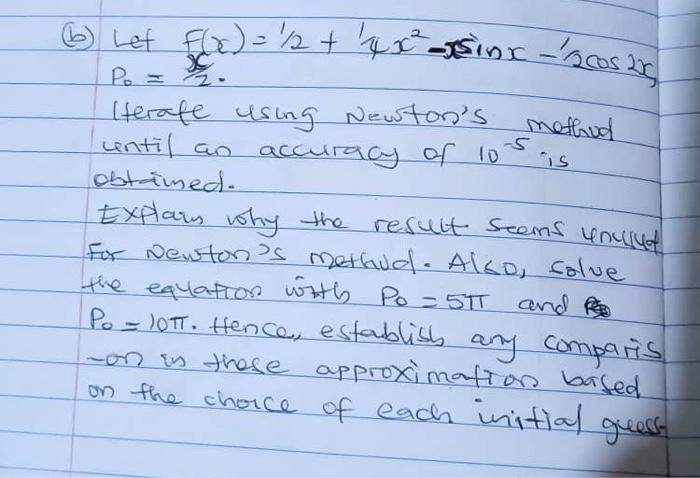 (b) Let f(x) = 1/2 + 1/4 x² - x sin x - 1/2 cos 2x,
P₀ = x/2.
Iterate using Newton's method
until an accuracy of 10⁻⁵ is
obtained.
Explain why the result seems
for Newton's method. Also, solve
the equation with P₀ = 5π and
P₀ = 10π. Hence, establish any comparis
-on in these approximation based
on the choice of each initial guess